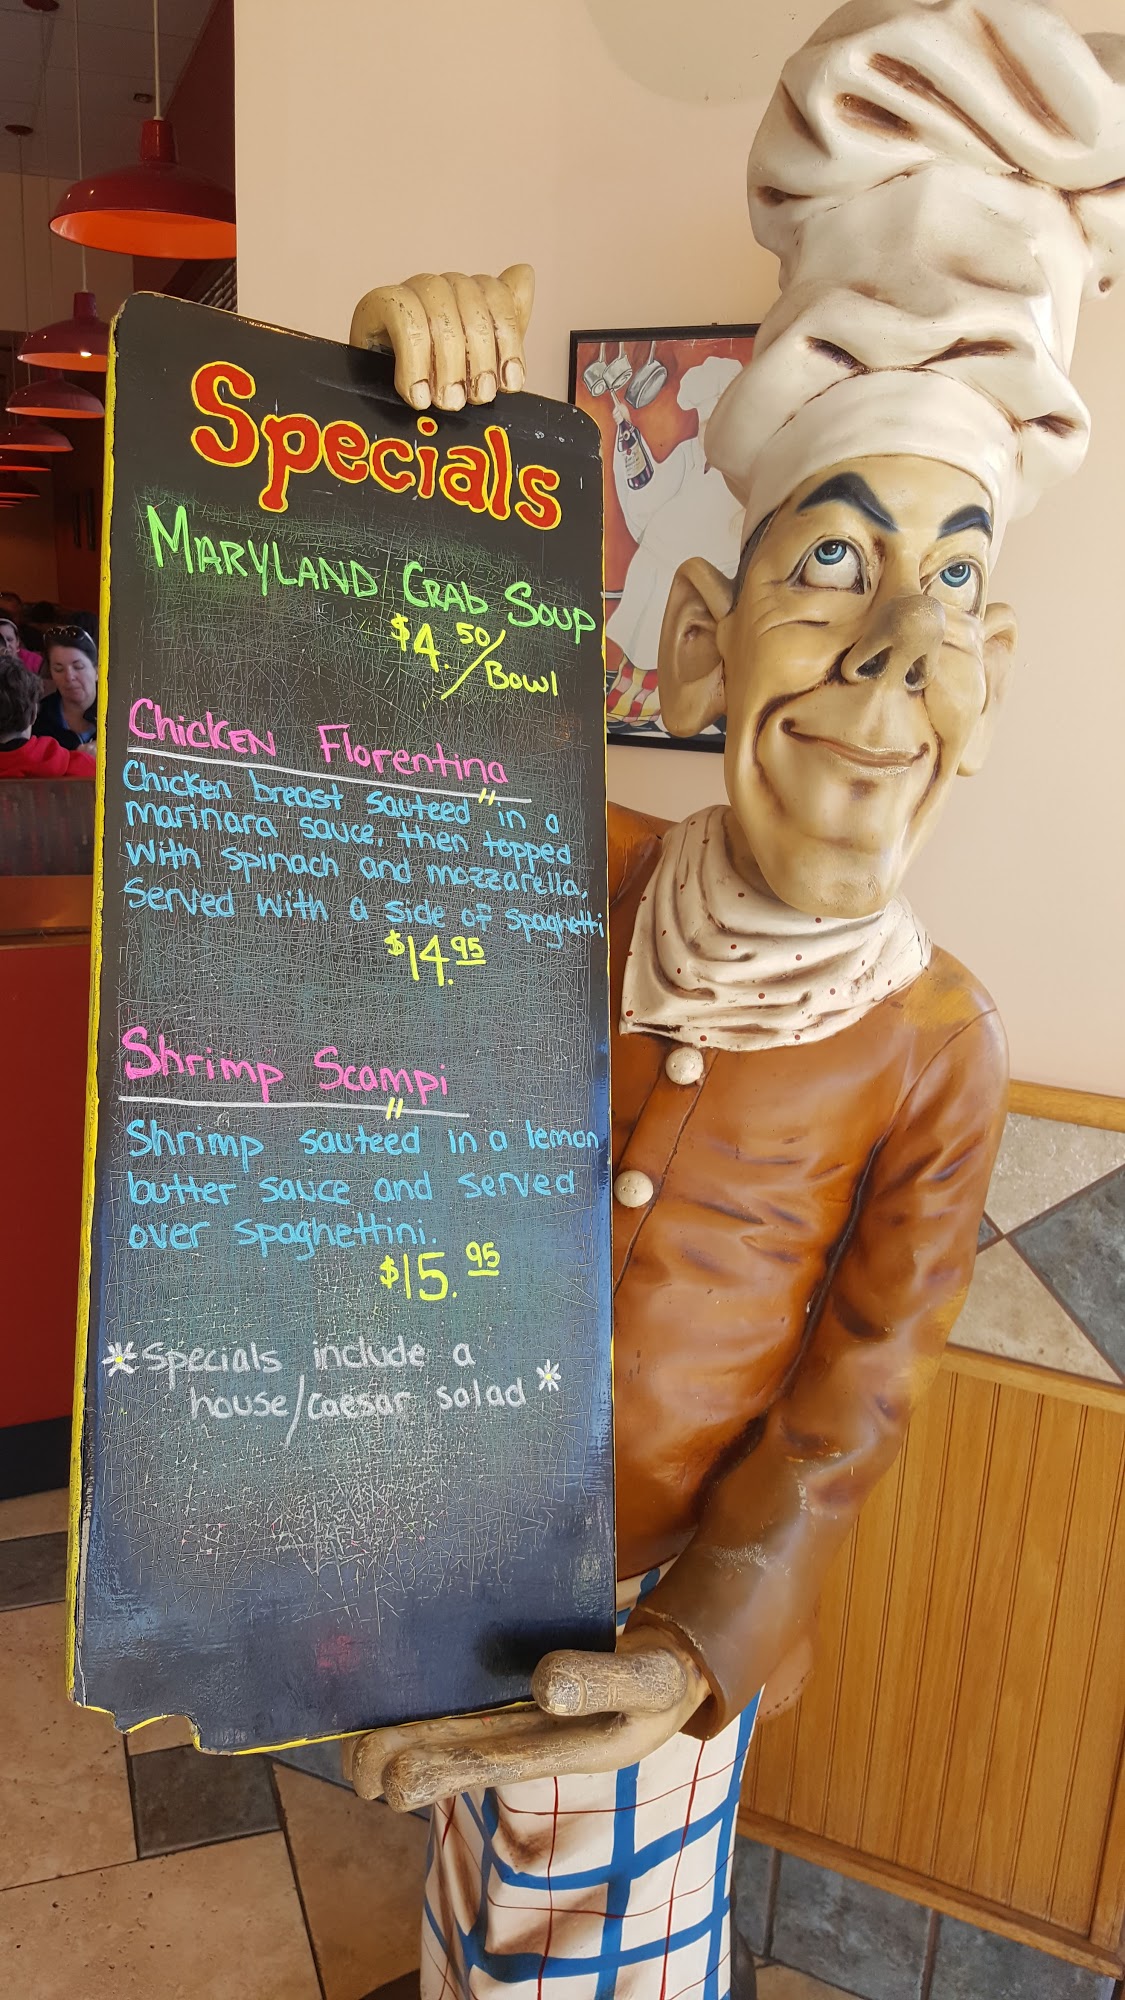 Specials
MARYLAND CRAB SOUP
$4.50/Bowl
Chicken Florentina
Chicken breast sauteed in a
marinara sauce, then topped
with spinach and mozzarella,
Served with a side of spaghetti
$14.95
Shrimp Scampi
Shrimp sauteed in a lemon
butter sauce and served
over spaghettini.
$15.95
*Specials include a
house/caesar salad*